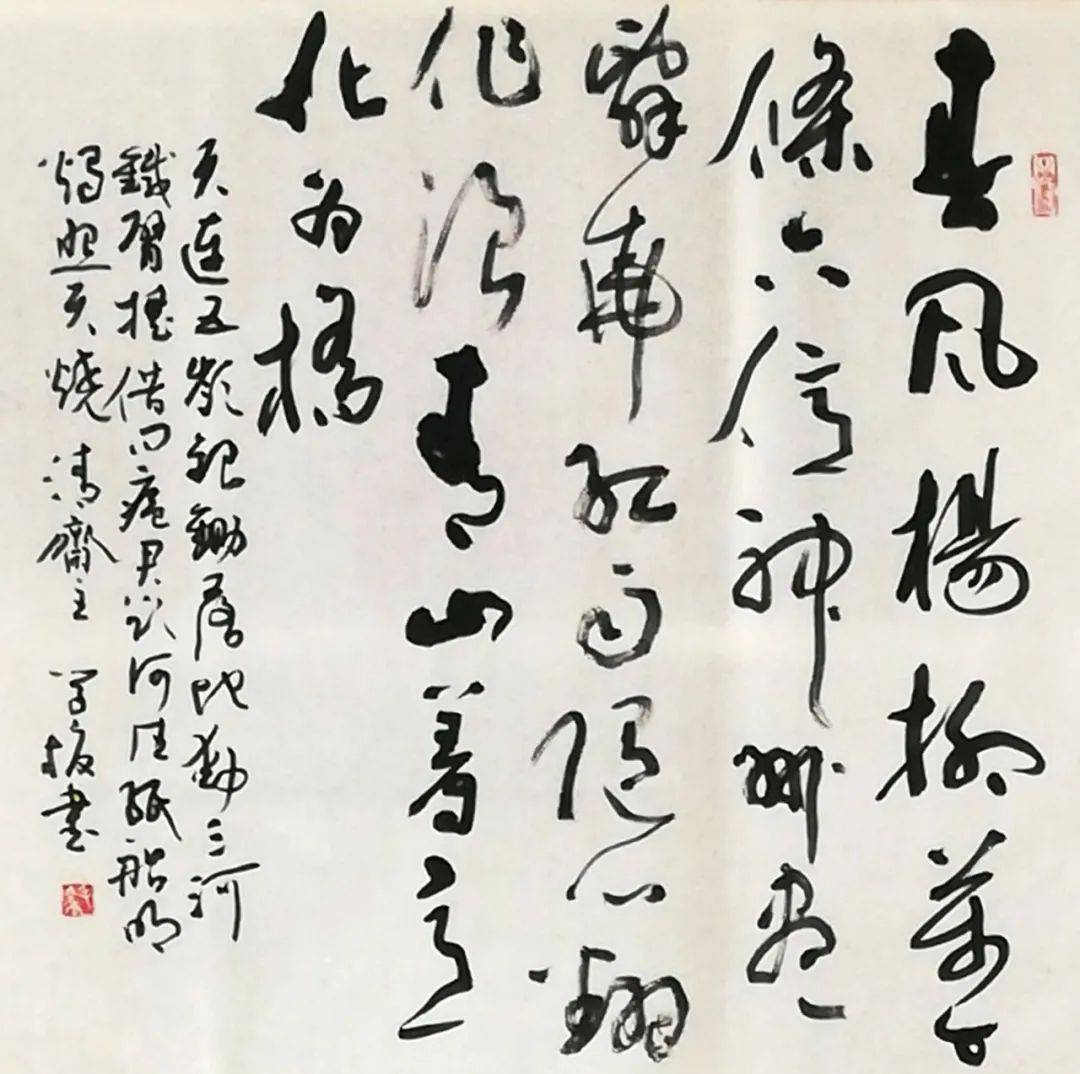 春風楊柳萬千
條六億神州盡
舜堯紅雨隨心翻
作浪青山着意
化为橋
天連五嶺銀鋤落地動三河
鐵臂搖借问瘟君欲何往紙船明
燭照天燒 清齋主 書